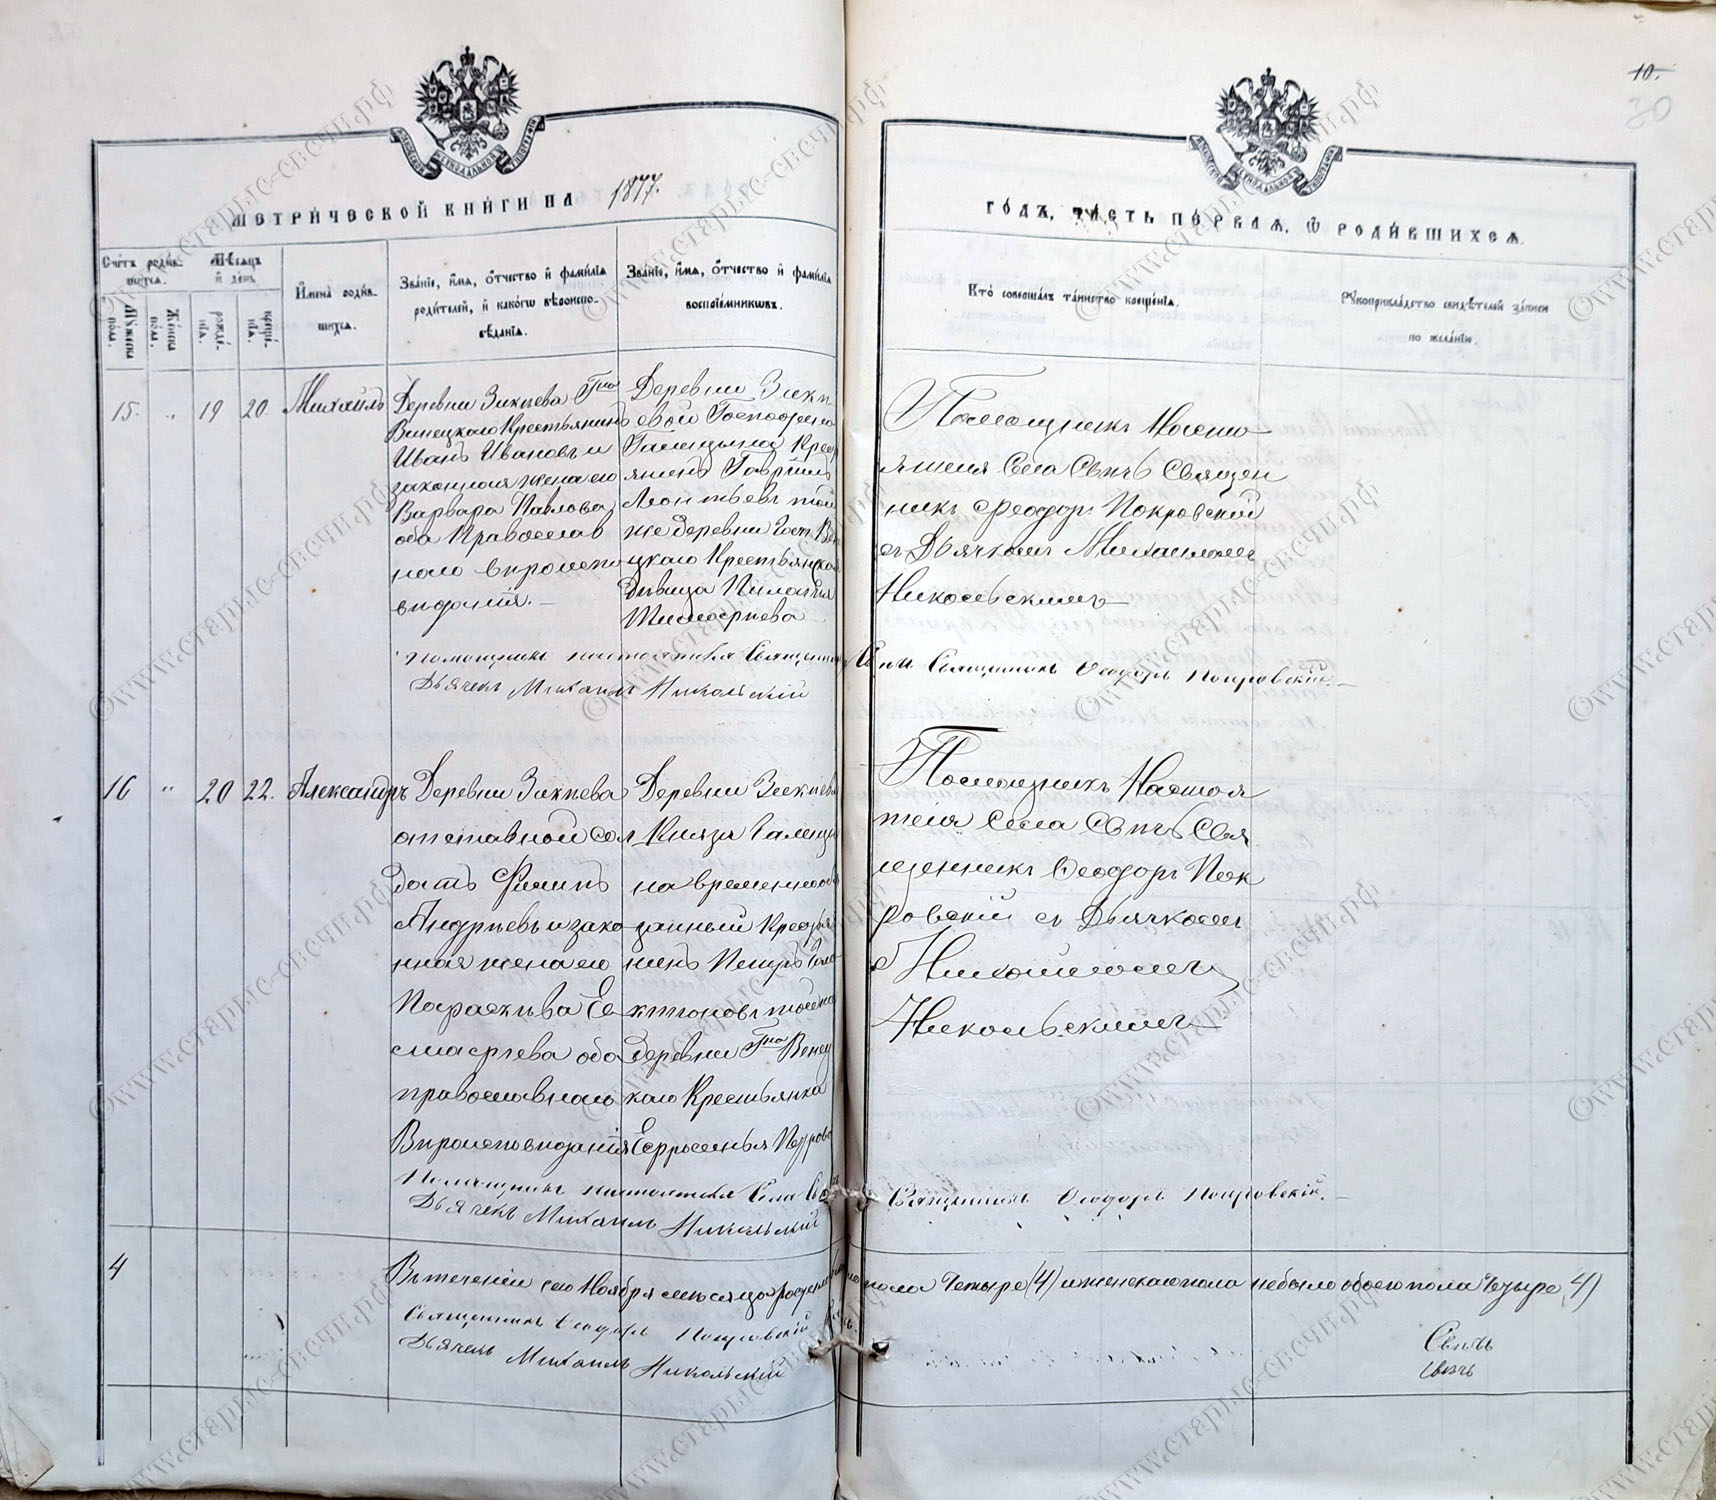 10.
30
МЕТРИ́ЧЕСКОЙ КНИ́ГИ НА 1877.
ГО́ДЪ, ЧА́СТЬ ПЕ́РВАЯ, Ѡ РОДИ́ВШИХСЯ.
Сче́тъ роди́вшихся.
Мѣ́сяцъ и де́нь
Мꙋжеска пола.
Женска пола.
рожде́нїѧ.
креще́нїѧ.
Имена̀ роди́вшихсѧ.
Зва́нїе, и́мѧ, о́тчество и фами́лїѧ
роди́телей, и како́гѡ вѣроиспо-
вѣ́данїѧ.
Зва́нїе, и́мѧ, о́тчество и фами́лїѧ
воспрїе́мникѡвъ.
Кто̀ соверша́лъ та́инство креще́нїѧ.
Рꙋкоприкла́дство свидѣ́телей за́писи
по жела́нїю.
15. „ 19 20. Михаилъ
Деревни Зикѣева Гна
Венецкаго Крестьянинъ
Иванъ Ивановъ и
законная жена его
Варвара Павлова
оба Православ
наго вѣроиспо
вѣданія.
Деревни Зикѣ
евой Господина
Галицына Крест
янинъ Гаврiилъ
Леонтьевъ той
же деревни Госп. Вен
цкаго Крестьянка
Дѣвица Пилагия
Тимофеева
Помощникъ Настоя
теля Села Свѣчь Священ
никъ Феодоръ Покровскій
съ Дьячкомъ Михаиломъ
Никольскимъ
Помощникъ настоятеля Священникъ
Села Священникъ Ѳеодоръ Покровскій.
Дьячекъ Михаилъ Никольскій
16 „ 20 22. Александръ
Деревни Зикѣева
отставной сол
датъ Филипъ
Андреевъ и зако
нная жена его
Параскѣва Ев
оба
православнаго
Вѣроисповѣданія
Деревни Зикѣева
Князя Галицы
на временнообя
занный Крестья
нинъ Петръ
деревни Гна Венец
каго Крестьянка
Ефросинья Петрова
Помощникъ Настоя
теля Села Свѣчь Свя
щенникъ Ѳеодоръ Пок
ровскій съ Дьячкомъ
Никольскимъ
Помощникъ настоятеля Села
Священникъ Ѳеодоръ Покровскій.
Дьячекъ Михаилъ Никольскій
4
Въ течении сего Ноября месяца пола Четыре (4) и женскаго пола небыло обоего пола Четыре (4)
Священникъ Ѳеодоръ Покровскій
Дьячекъ Михаилъ Никольскій
Свѣчь
Свѣчь
©www.старыс-свсчи.рф